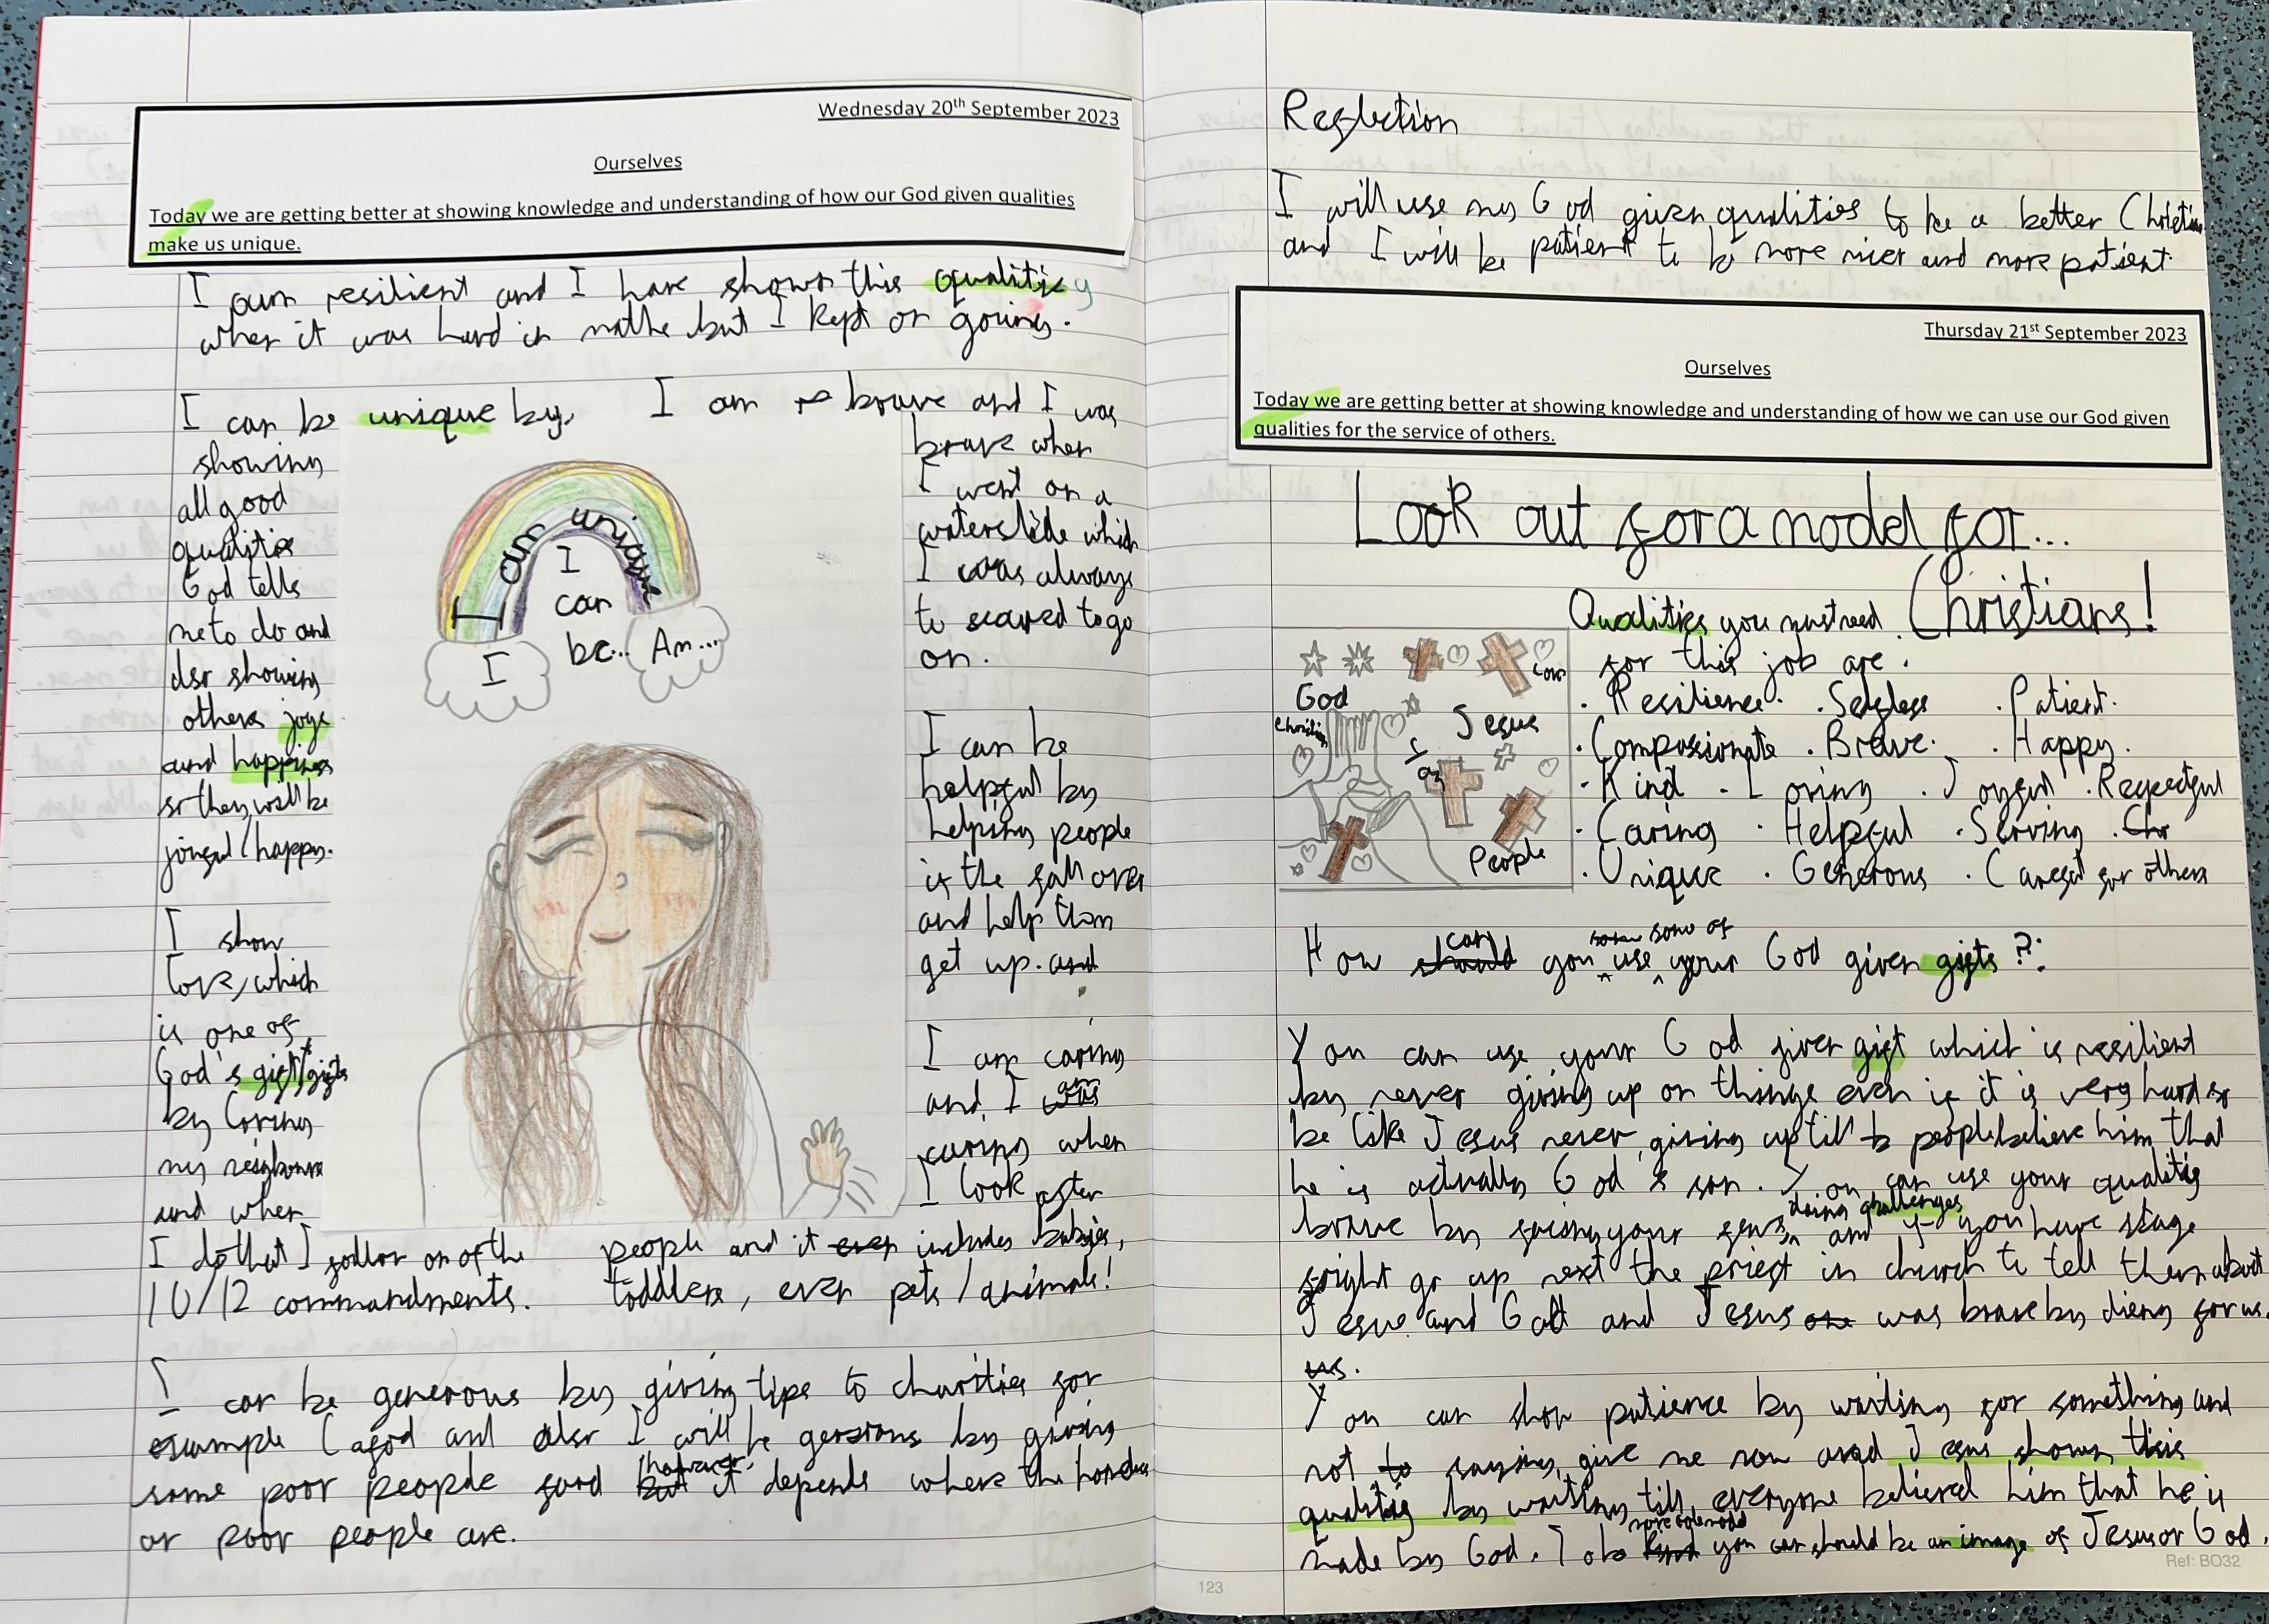 Wednesday 20th September 2023
Ourselves
Today we are getting better at showing knowledge and understanding of how our God given qualities
make us unique.
I am resilient and I have shown this quality
when it was hard in maths but I kept on going.
I can be unique by
showing
all good
qualities
God tells
me to do and
also showing
others joys
and happiness
so they will be
joyful/happy.
I show
love, which
is one of
God's gift/gifts
by loving
my neighbours
and when
I do that I follow on of the
10/12 commandments.
I am brave and I was
brave when
I went on a
waterslide which
I was always
to scared to go
on.
I can be
helpful by
helping people
if the fall over
and help them
get up. and
I am caring
and I am
caring when
I look after
people and it even includes babies,
toddlers, even pets/animals!
I am unique
I
can
be...
I
Am...
I can be generous by giving tips to charities for
example Cafod and also I will be generous by giving
some poor people food but however it depends where the
or poor people are.
Reflection
I will use my God given qualities to be a better Christian
and I will be patient to be more nicer and more patient.
Thursday 21st September 2023
Ourselves
Today we are getting better at showing knowledge and understanding of how we can use our God given
qualities for the service of others.
Look out for a model for...
Christians!
Qualities you must need
for this job are:
· Resilience · Selfless · Patient.
· Compassionate · Brave · Happy.
· Kind · Loving · Joyful · Respectful
· Caring · Helpful · Serving · Chr
· Unique · Generous · Careful for others
God
Love
Christian
Jesus
People
How should can you some use some of your God given gifts?:
You can use your God given gift which is resilient
by never giving up on things even if it is very hard so
be like Jesus never giving up till to people believe him that
he is actually God's son. You can use your qualitie
brave by facing your fears, doing challenges and if you have stage
fright go up next the priest in church to tell them about
Jesus and God and Jesus was brave by dieng for us.
us.
You can show patience by waiting for something and
not to saying give me now and Jesus shows this
quality by waiting till everyone believed him that he is
made by God. To be you can should be an image of Jesus or God.
123
Ref: BO32